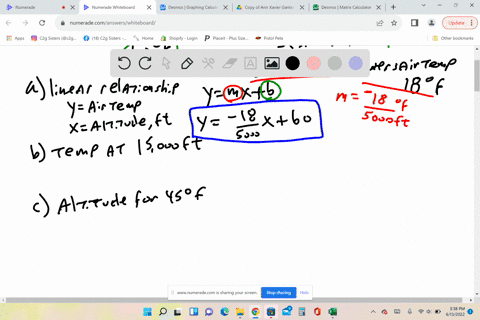 Numerade
Numerade Whiteboard
Desmos | Graphing Calcul
Copy of Ann Xavier Gainz
Desmos | Matrix Calculator
numerade.com/answers/whiteboard/
Update
C2g Sisters (@c2g...
(14) C2g Sisters -...
Pistol Pete
a) linear relationship
y = Air Temp
x = Altitude, ft
y = mx + b
y = -18/5000 x + 60
Air Temp
18°F
m = -18 °F / 5000 ft
b) Temp AT 15,000 ft
c) Altitude for 45°f
www.numerade.com is sharing your screen.
Stop sharing
Hide
3:38 PM
6/15/2022